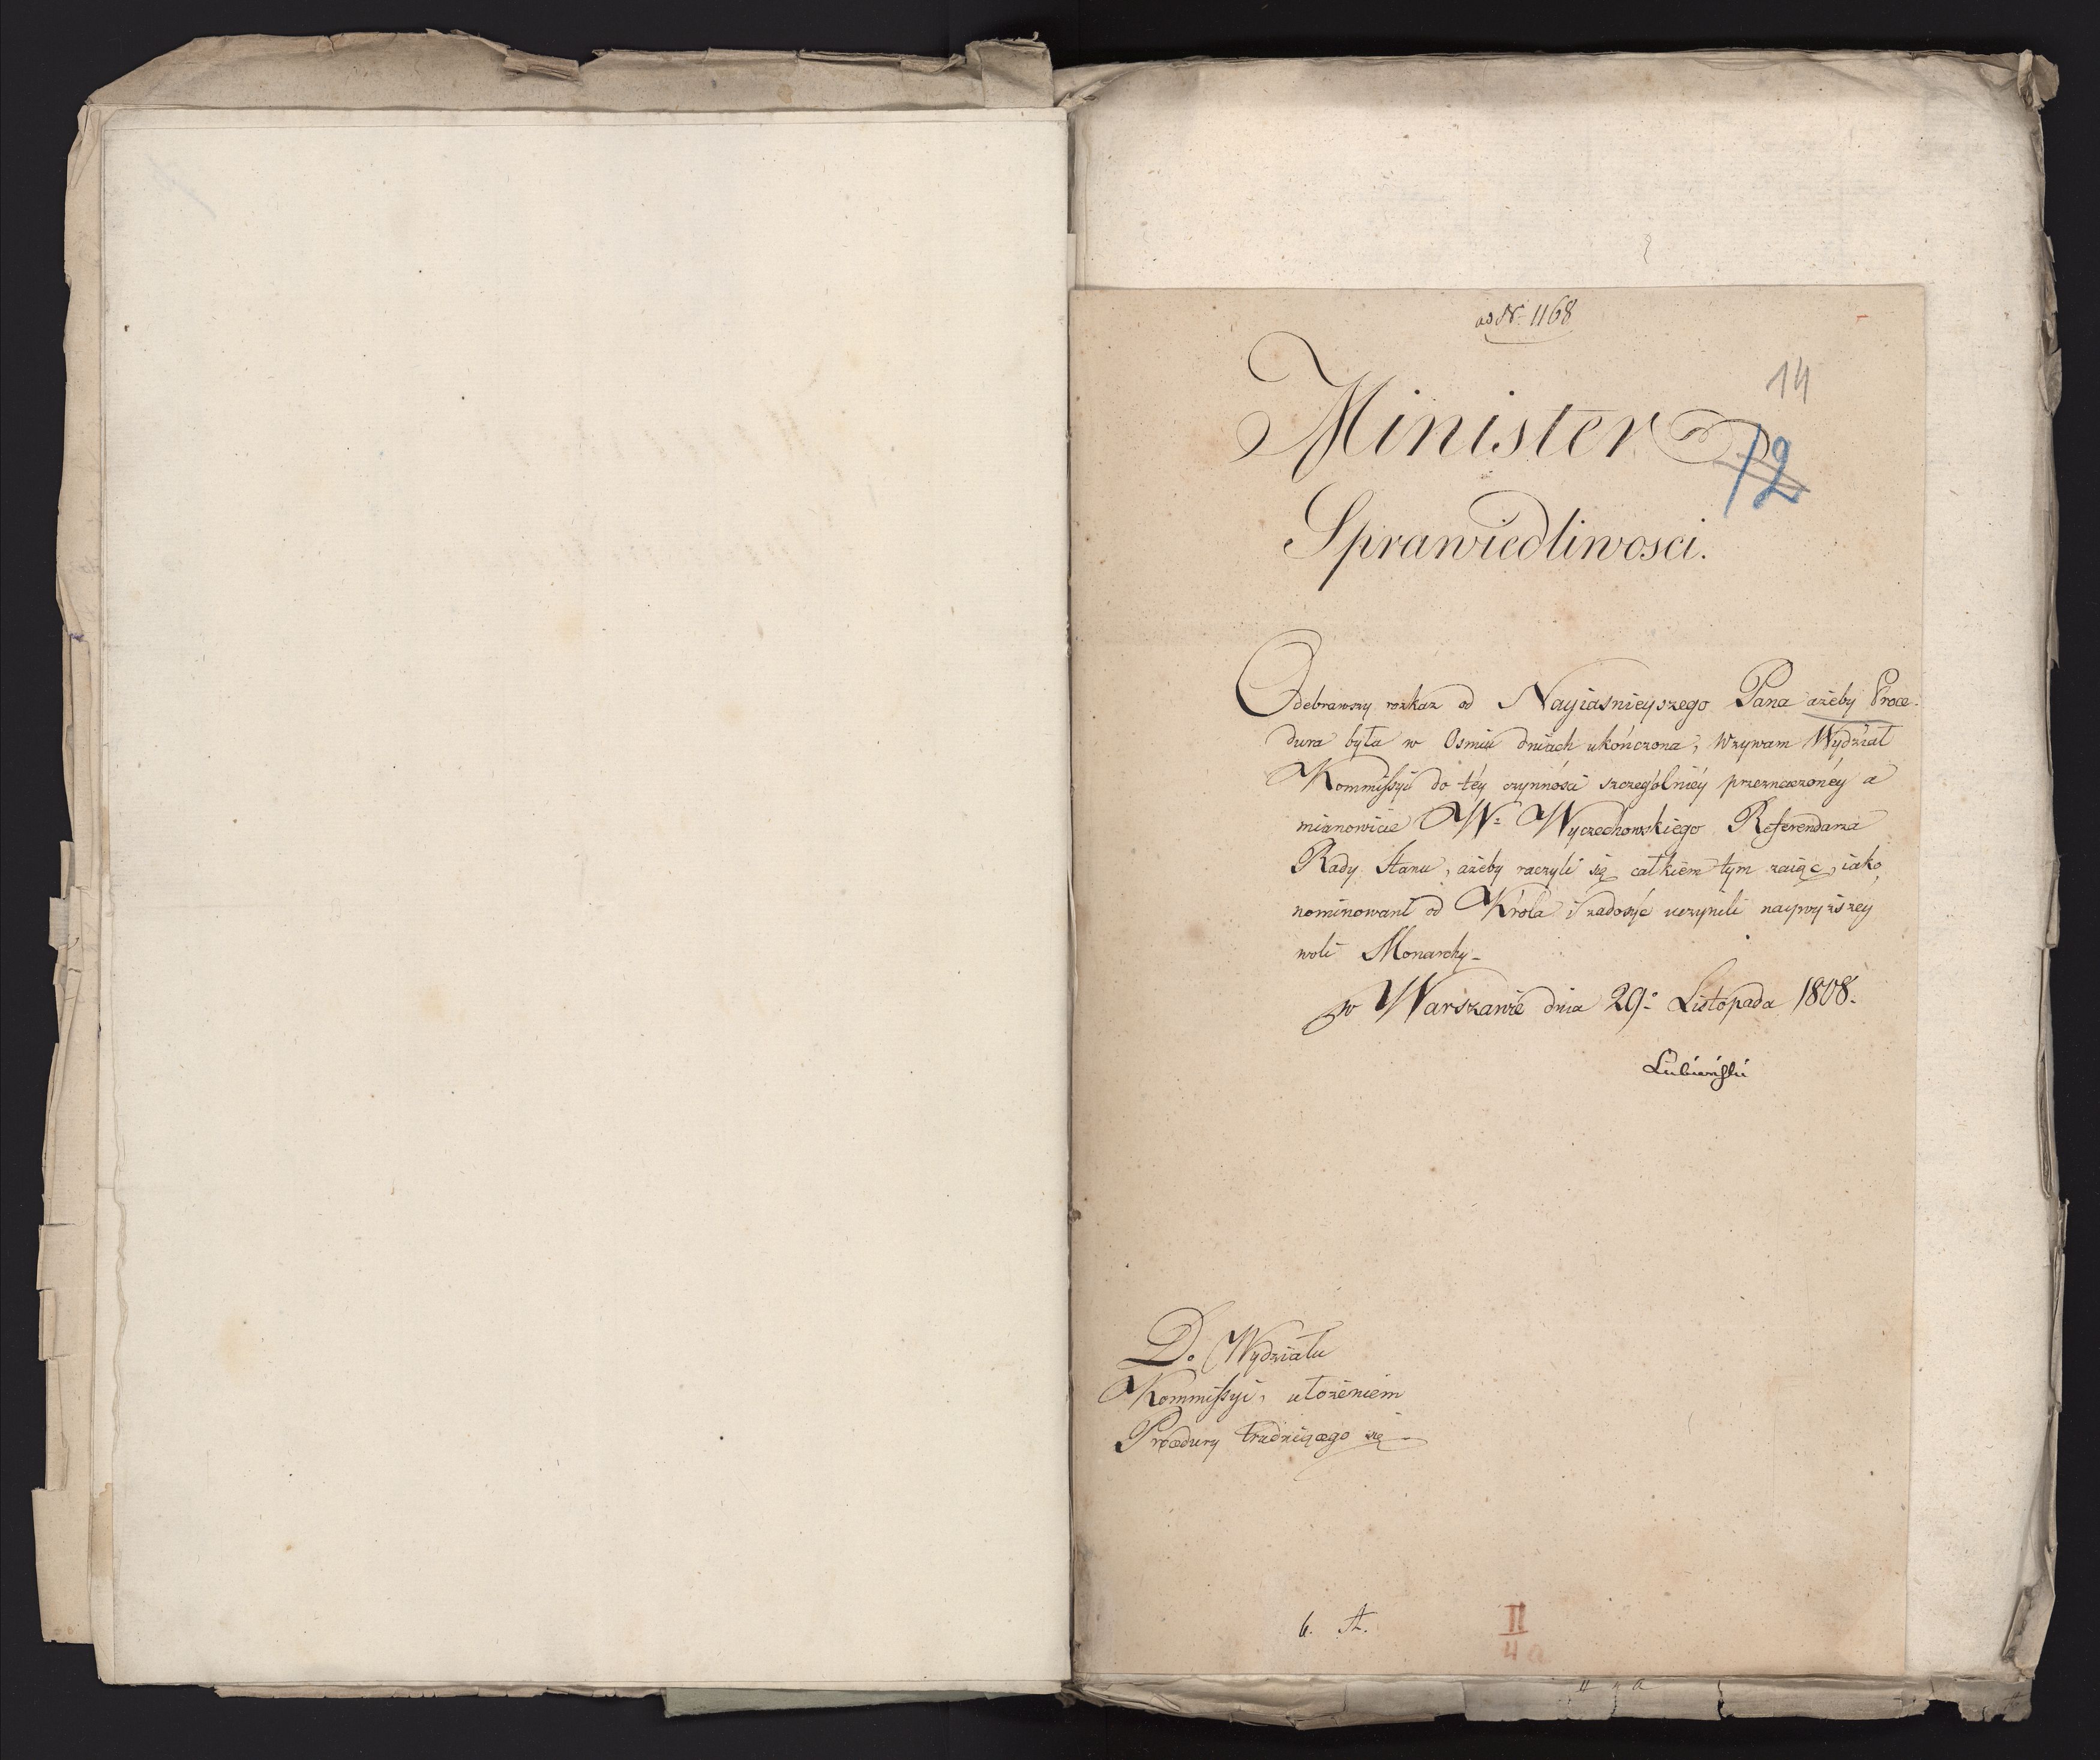 ad N. 1168
14
Minister
12
Sprawiedliwosci.
Odebrawszy rozkaz od Nayiasnieyszego Pana ażeby Proce-
dura była w Osmiu dniach ukończona, wzywam Wydział
Kommissyi do téy czynności szczególniéy przeznaczonéy a
mianowicie W. Wyczechowskiego Referendarza
Rady Stanu, ażeby raczyli się całkiem tym zaiąć, iako
nominowani od Króla i zadosyć uczynili naywyższey
woli Monarchy.
w Warszawie dnia 29. Listopada 1808.
Łubieński
Do Wydziału
Kommissyi, ułożeniem
Procedury trudniącego się
6. A.
II
4a